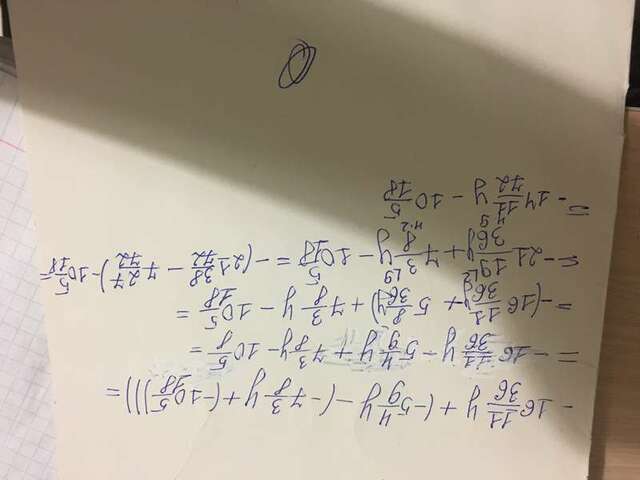 - 16 11/36 y + (-5 4/9 y - (-7 3/8 y + (-10 5/18))) =
= -16 11/36 y - 5 4/9 y + 7 3/8 y - 10 5/8 =
= -(16 11/36 y + 5 8/36 y) + 7 3/8 y - 10 5/18 =
= -21 19/36 y + 7 3/8 y - 10 5/18 = -(21 38/72 - 7 27/72) - 10 5/18 =
= -14 11/72 y - 10 5/18